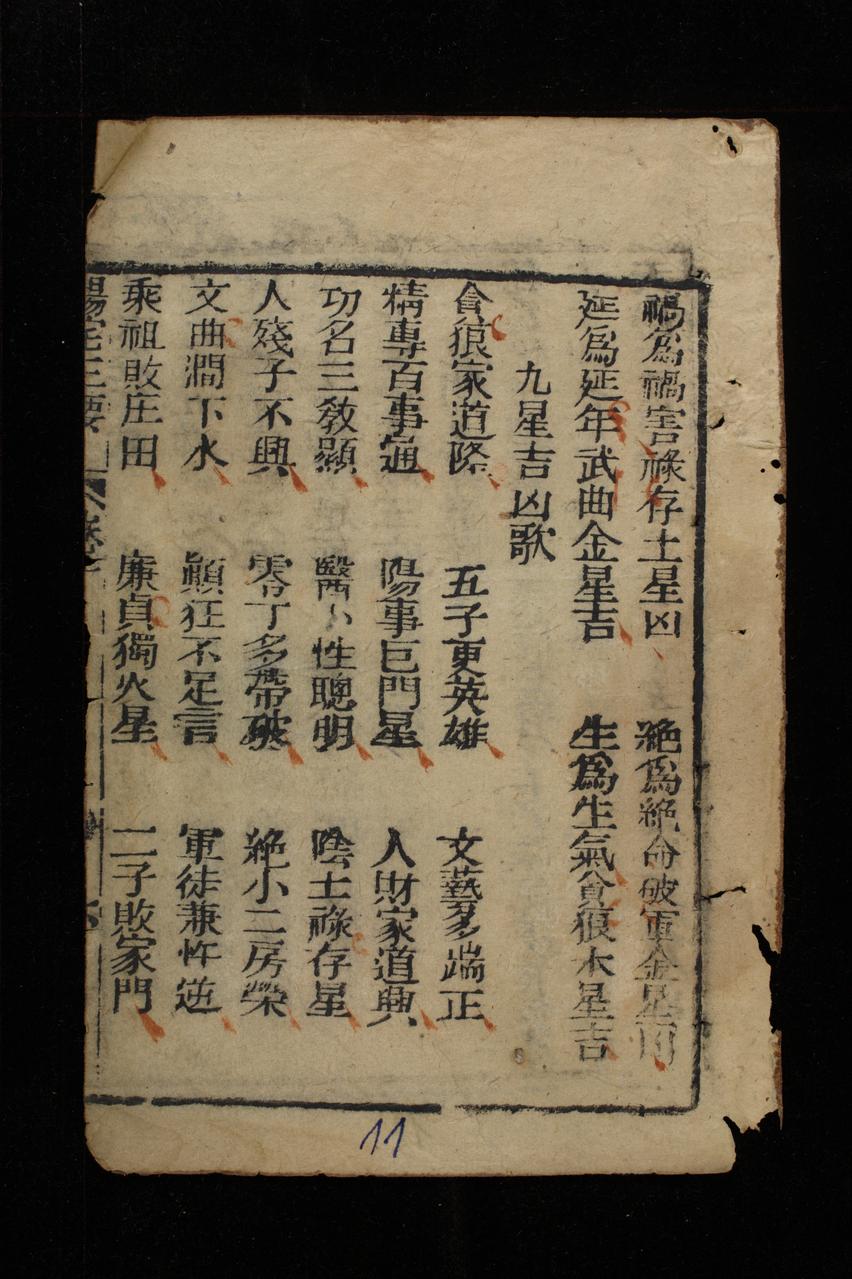 禍為禍害祿存土星凶 絕為絕命破軍金星凶
延為延年武曲金星吉 生為生氣貪狼木星吉
九星吉凶歌
貪狼家道隆 五子更英雄 文藝多端正
精專百事通 陽事巨門星 人財家道興
功名三教顯 醫卜性聰明 陰土祿存星
人殘子不興 零丁多帶破 絕小二房榮
文曲澗下水 顛狂不足言 軍徒兼忤逆
乘祖敗庄田 廉貞獨火星 二子敗家門
陽宅三要
11